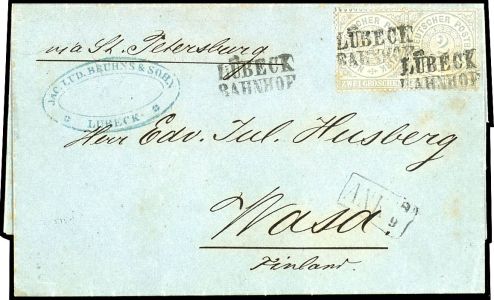 via St. Petersburg
LÜBECK
BAHNHOF
LÜBECK
BAHNHOF
LÜBECK
BAHNHOF
ZWEI GROSCHEN
2
JAC. LUD. BRUHNS & SOHN
LÜBECK.
Herrn Edv. Jul. Husberg
Wasa
Finland.